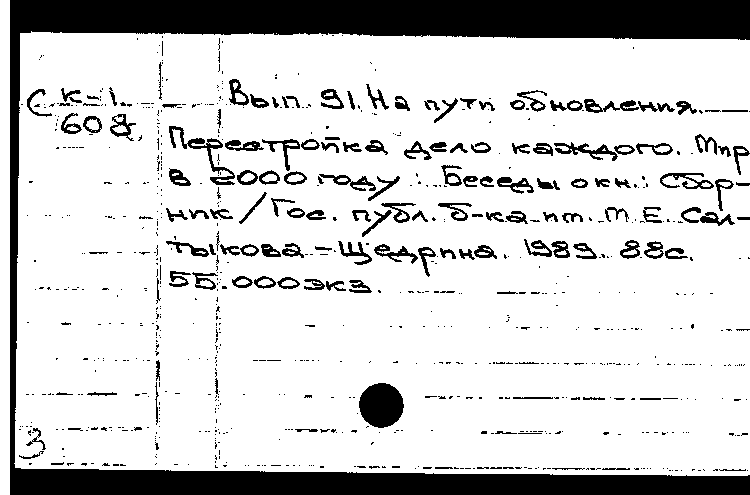 С К-1
608
Вып. 91. На пути обновления.
Перестройка дело каждого. Мир
в 2000 году : Беседы о кн.: Сбор-
ник / Гос. публ. б-ка им. М.Е. Сал-
тыкова-Щедрина. 1989. 88с.
55.000экз.
3